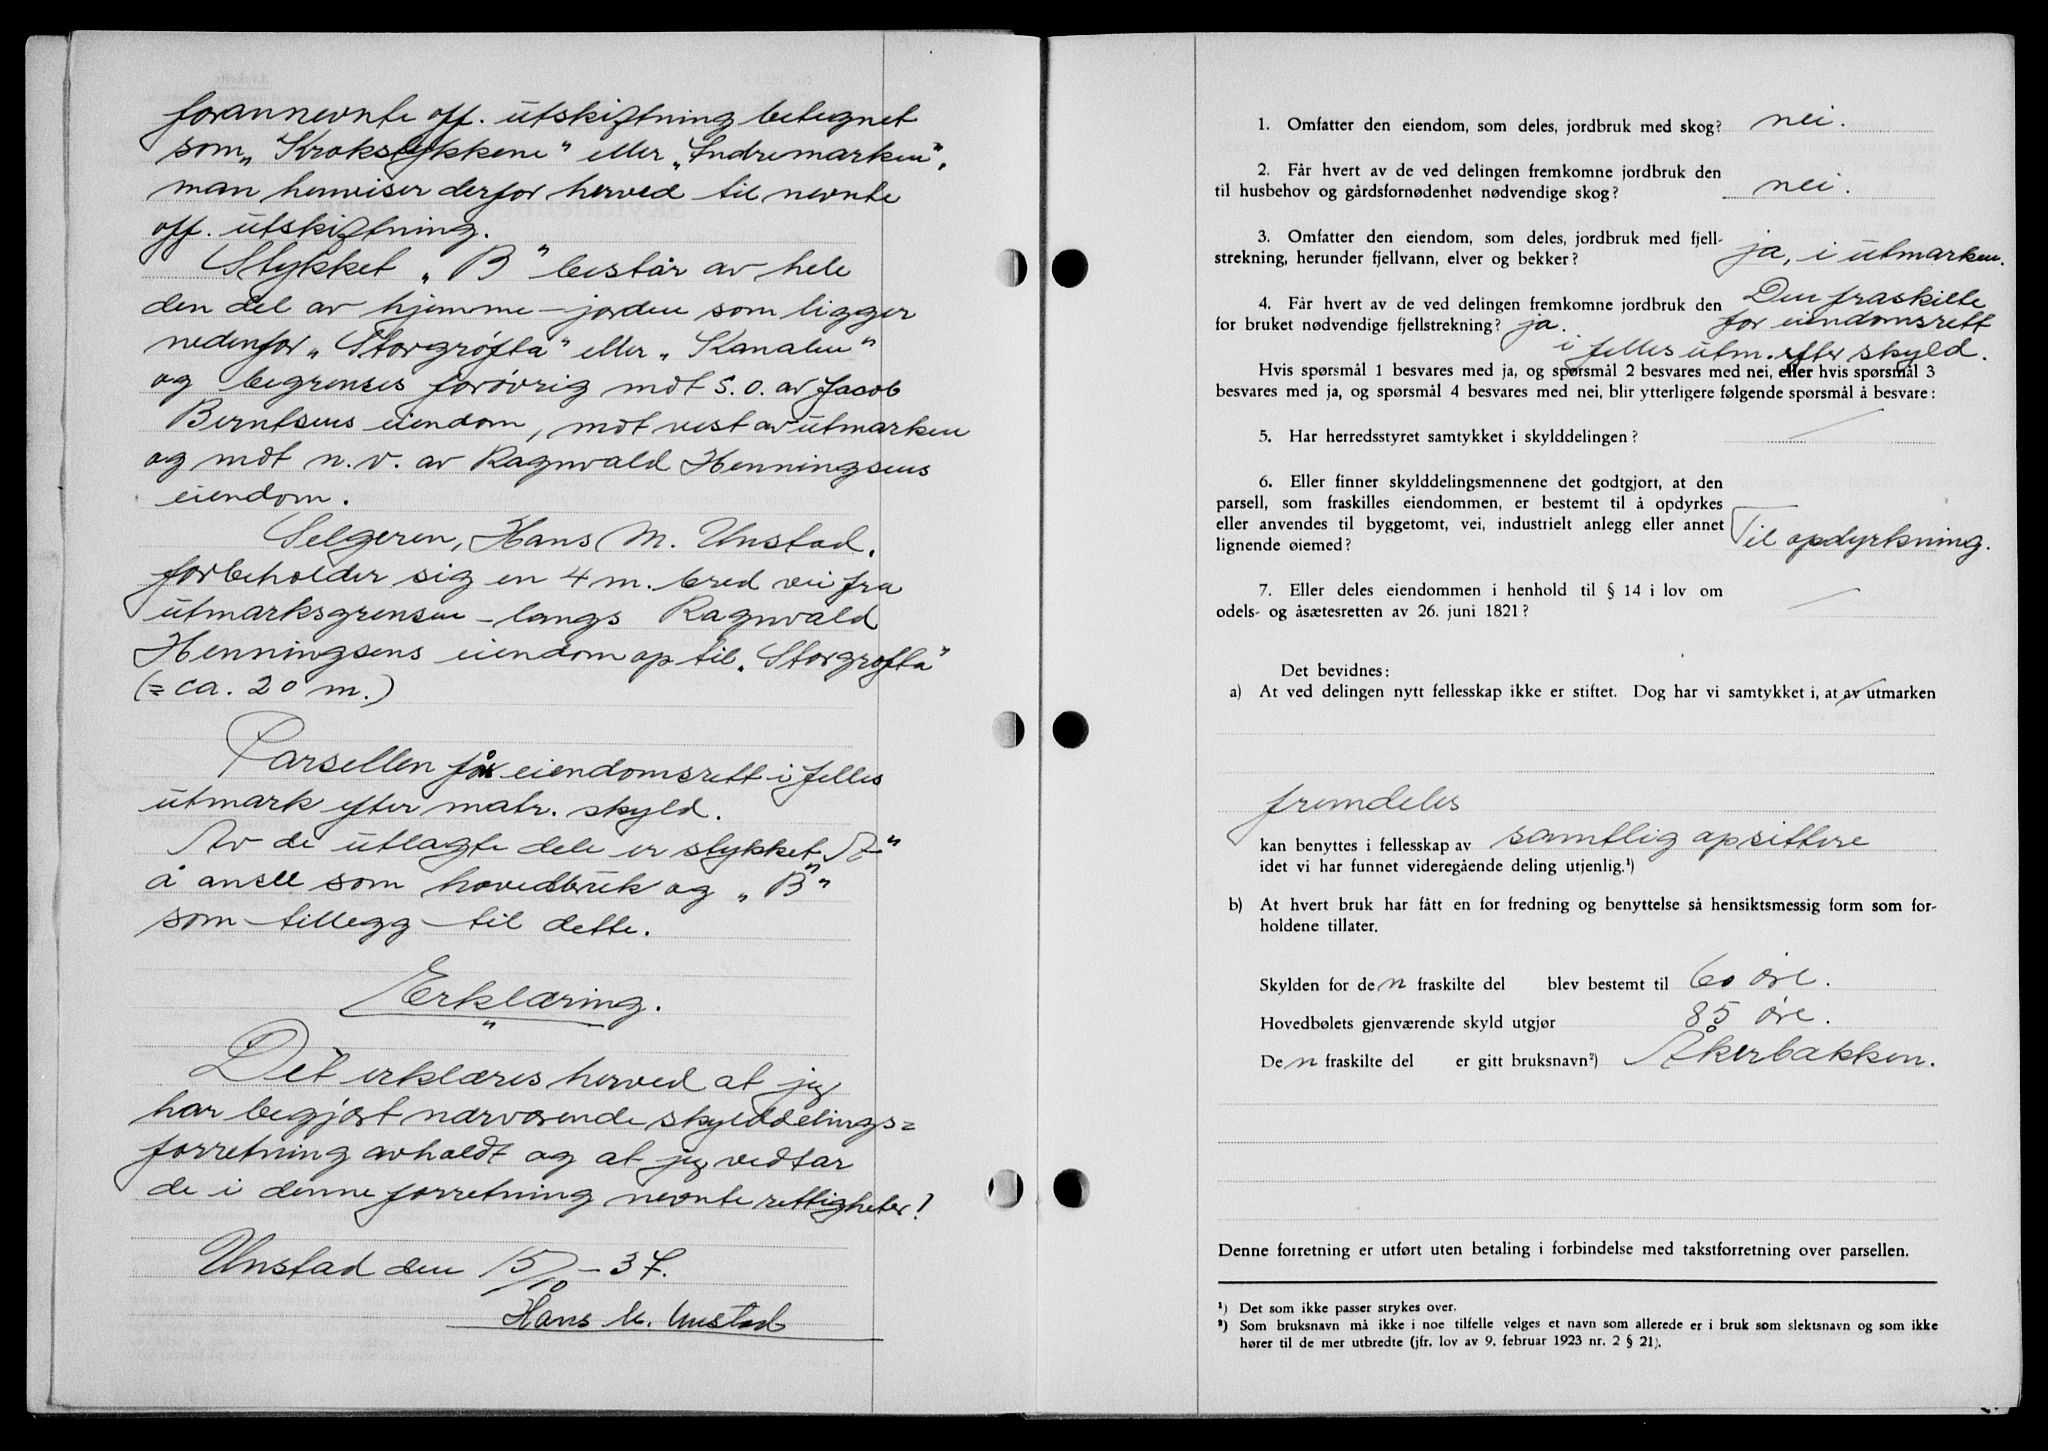 forannevnte off. utskiftning betegnet
som „Krokstykkene" eller „Indremarken",
man henviser derfor herved til nevnte
off. utskiftning.
Stykket „B" består av hele
den del av hjemme-jorden som ligger
nedenfor „Storgrøfta" eller „Kanalen"
og begrenses forøvrig mot s.o. av Jacob
Berntsens eiendom, mot vest av utmarken
og mot n.v. av Ragnvald Henningsens
eiendom.
Selgeren, Hans M. Unstad,
forbeholder sig en 4 m. bred vei fra
utmarksgrensen langs Ragnvald
Henningsens eiendom op til „Storgrøfta"
(= ca. 20 m.)
Parsellen får eiendomsrett i felles
utmark efter matr. skyld.
Av de utlagte dele er stykket „A"
å ansee som hovedbruk og „B"
som tillegg til dette.
Erklæring.
Det erklæres herved at jeg
har begjært nærværende skylddelings=
forretning avholdt og at jeg vedtar
de i denne forretning nevnte rettigheter!
Unstad den 15/10-37.
Hans M. Unstad
1. Omfatter den eiendom, som deles, jordbruk med skog? nei.
2. Får hvert av de ved delingen fremkomne jordbruk den
til husbehov og gårdsfornødenhet nødvendige skog? nei.
3. Omfatter den eiendom, som deles, jordbruk med fjell-
strekning, herunder fjellvann, elver og bekker? ja, i utmarken.
4. Får hvert av de ved delingen fremkomne jordbruk den Den fraskilte
for bruket nødvendige fjellstrekning? ja. får eiendomsrett
i felles utm. efter skyld.
Hvis spørsmål 1 besvares med ja, og spørsmål 2 besvares med nei, eller hvis spørsmål 3
besvares med ja, og spørsmål 4 besvares med nei, blir ytterligere følgende spørsmål å besvare:
5. Har herredsstyret samtykket i skylddelingen?
6. Eller finner skylddelingsmennene det godtgjort, at den
parsell, som fraskilles eiendommen, er bestemt til å opdyrkes
eller anvendes til byggetomt, vei, industrielt anlegg eller annet
lignende øiemed? Til opdyrkning.
7. Eller deles eiendommen i henhold til § 14 i lov om
odels- og åsætesretten av 26. juni 1821?
Det bevidnes:
a) At ved delingen nytt fellesskap ikke er stiftet. Dog har vi samtykket i, at av utmarken
fremdeles
kan benyttes i fellesskap av samtlig opsittere
idet vi har funnet videregående deling utjenlig.¹)
b) At hvert bruk har fått en for fredning og benyttelse så hensiktsmessig form som for-
holdene tillater.
Skylden for den fraskilte del blev bestemt til 60 øre.
Hovedbølets gjenværende skyld utgjør 85 øre.
Den fraskilte del er gitt bruksnavn²) Åkerbakken.
Denne forretning er utført uten betaling i forbindelse med takstforretning over parsellen.
¹) Det som ikke passer strykes over.
²) Som bruksnavn må ikke i noe tilfelle velges et navn som allerede er i bruk som slektsnavn og som ikke
hører til de mer utbredte (jfr. lov av 9. februar 1923 nr. 2 § 21).